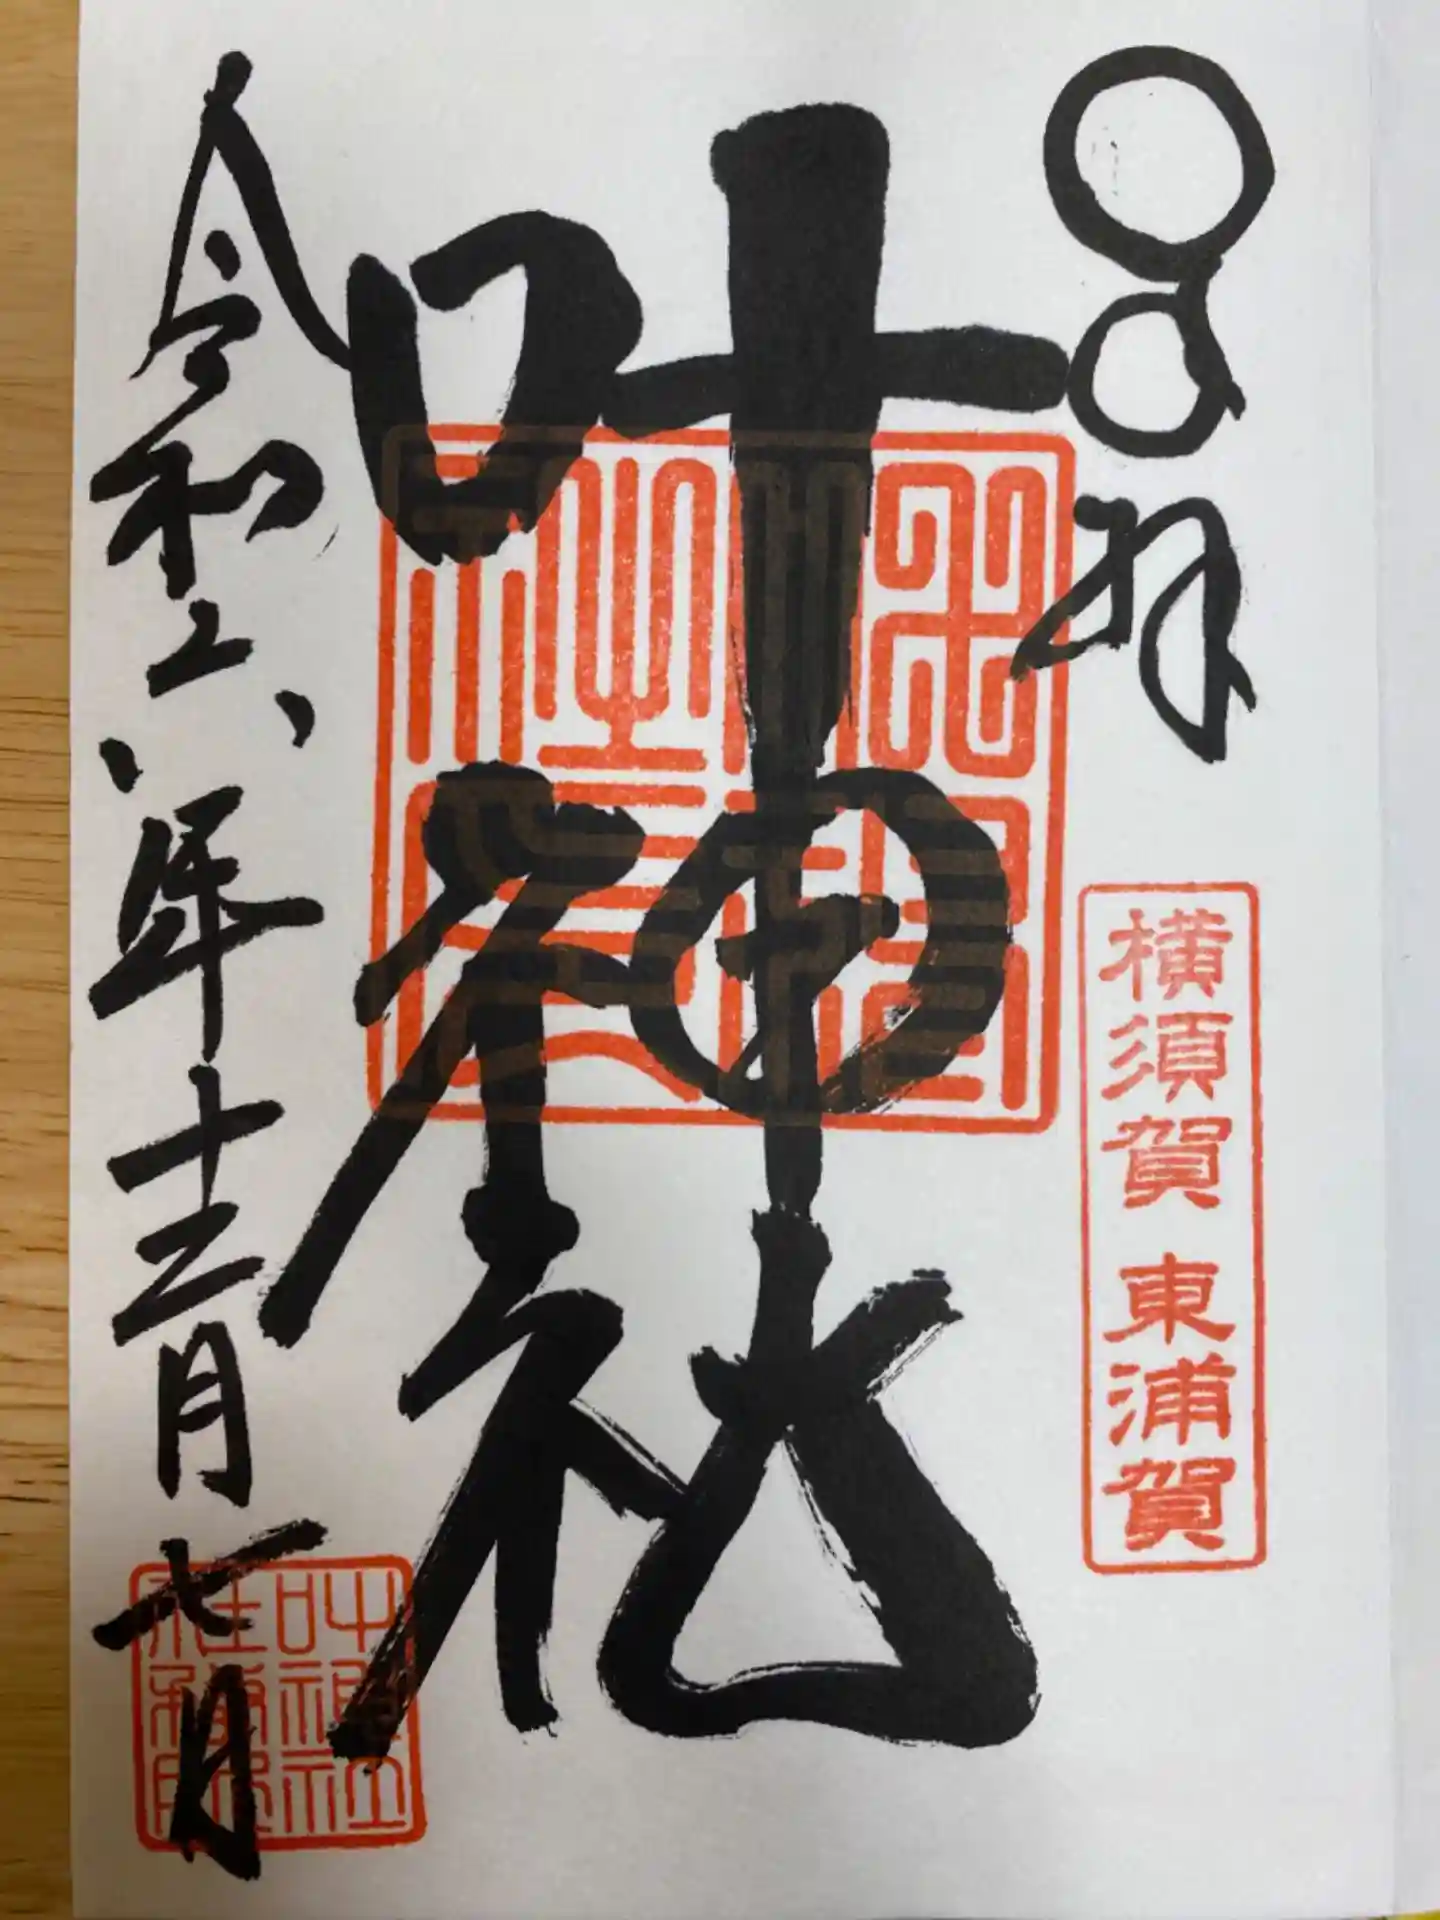 拝
横須賀 東浦賀
叶神社
令和六年十二月七日
叶神社
社務所